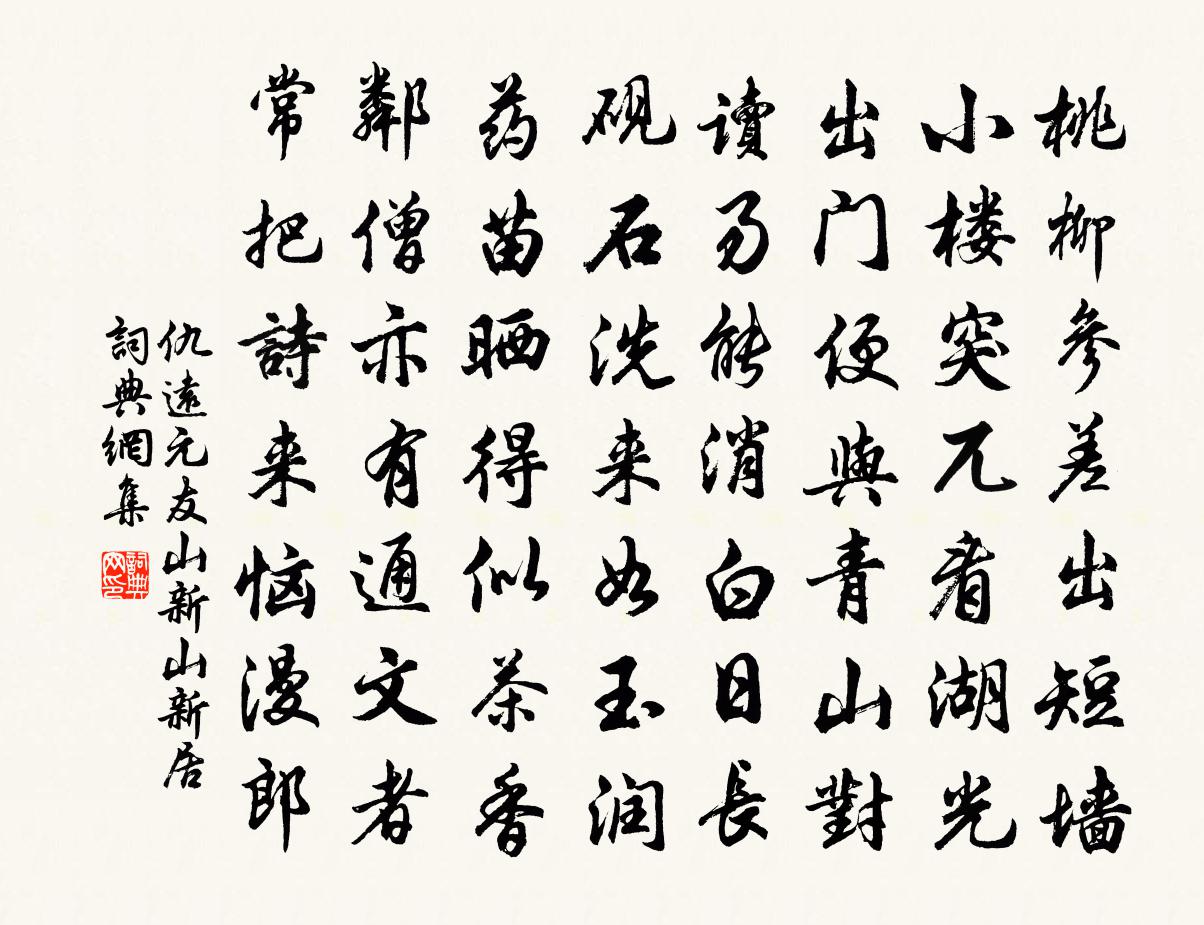 桃柳參差出短墙
小楼突兀看湖光
出门便與青山對
讀易能消白日長
砚石洗来如玉润
药苗晒得似茶香
鄰僧亦有通文者
常把詩来恼漫郎
仇遠元友山新山新居
詞典網集
詞典网印